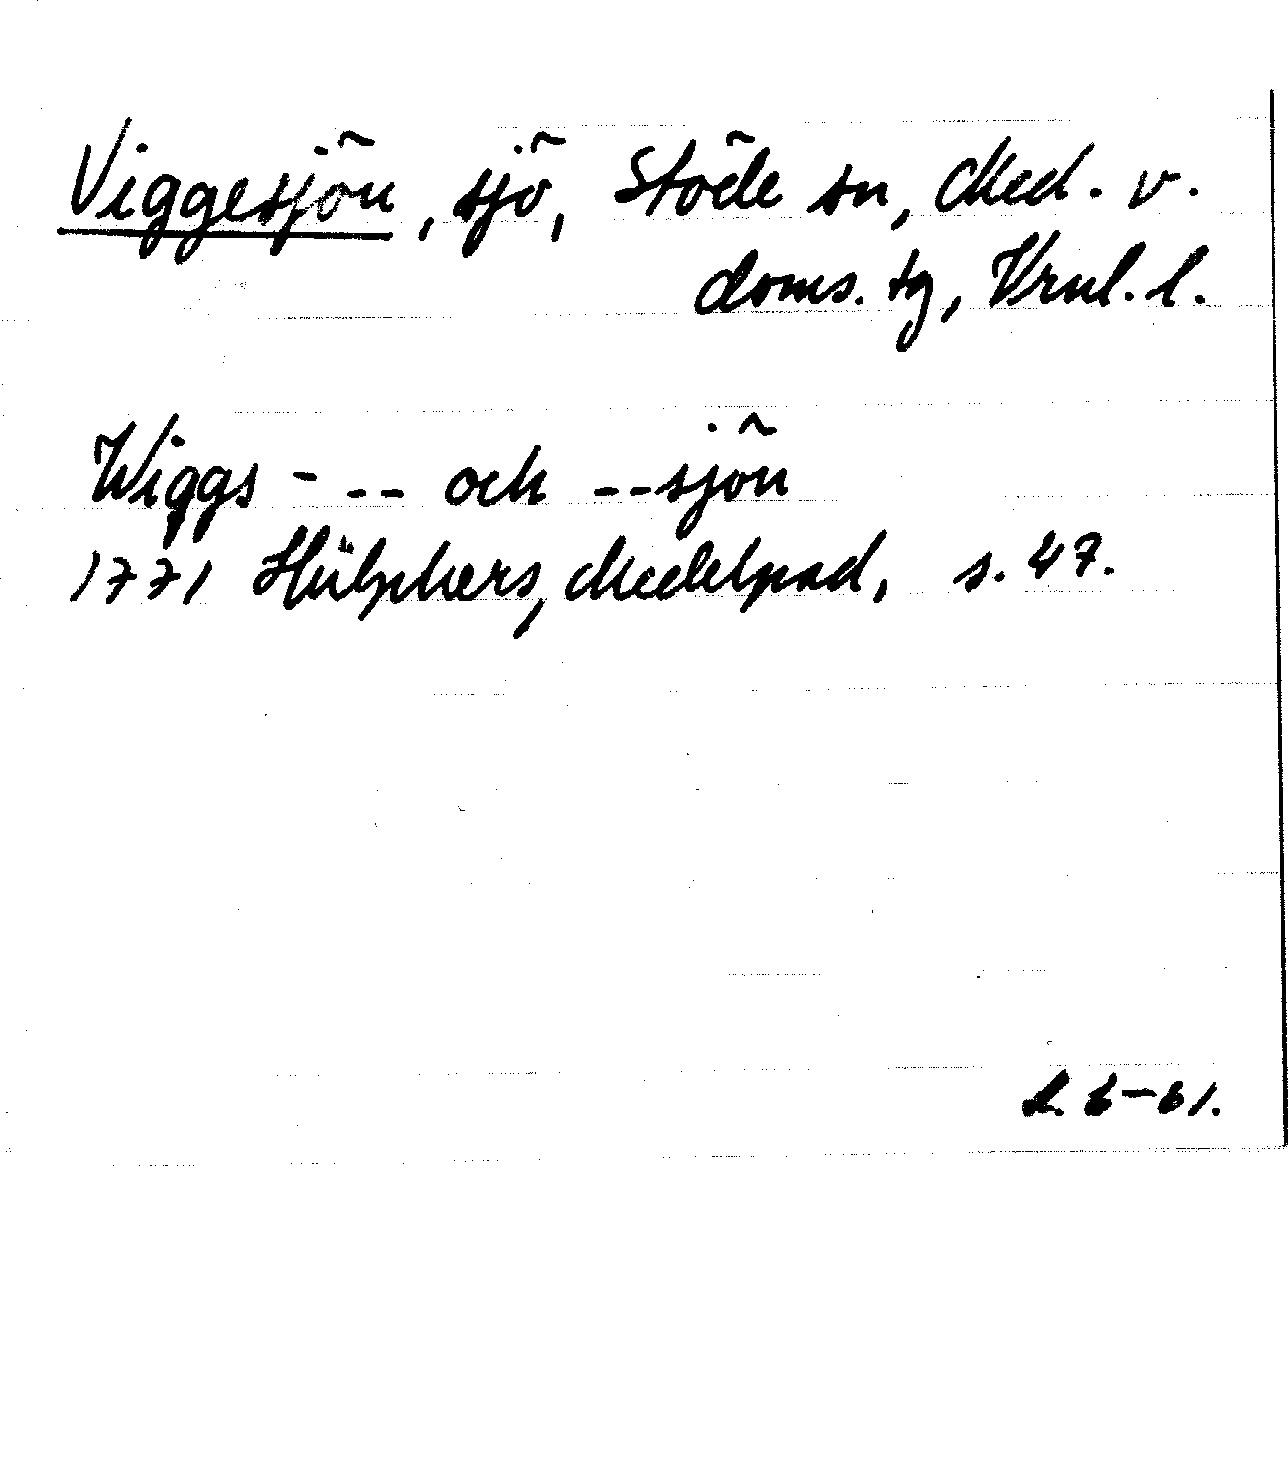 Viggesjön, sjö, Stöde sn, Med. v.
doms. tg, Vrnl. l.
Wiggs - -- och --sjön
1771 Hülphers, Medelpad, s. 47.
6-61.